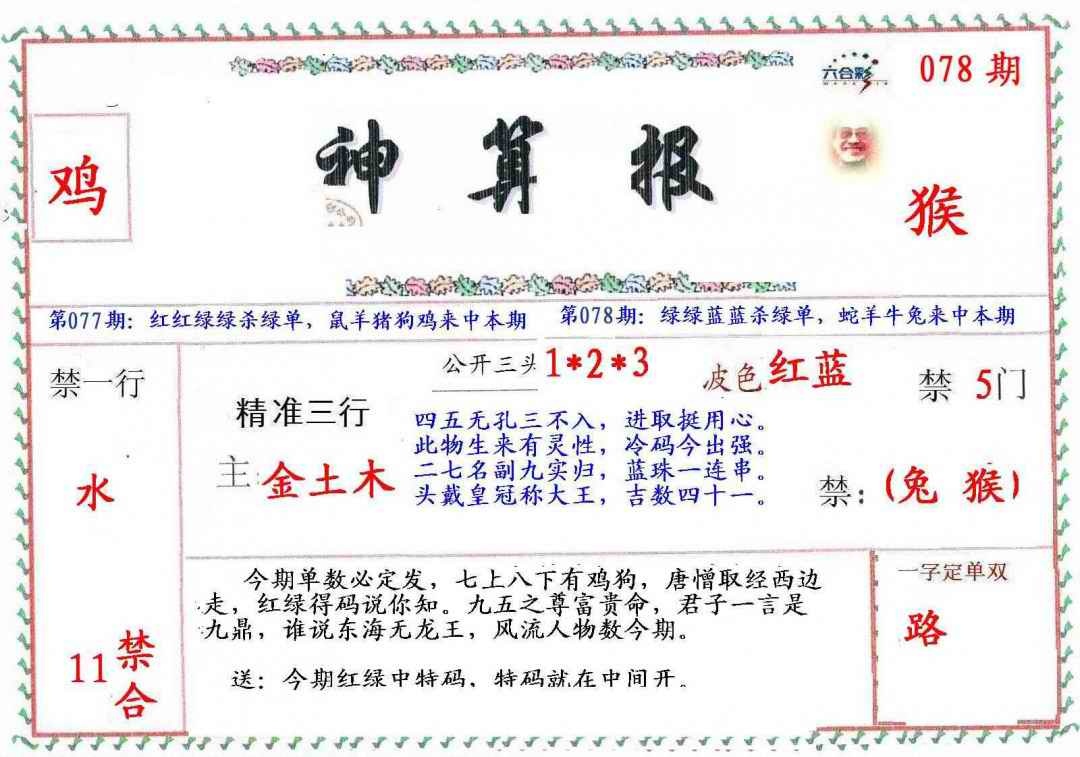 六合彩
078 期
鸡
神算报
猴
第077期：红红绿绿杀绿单，鼠羊猪狗鸡来中本期
第078期：绿绿蓝蓝杀绿单，蛇羊牛兔来中本期
禁一行
水
11 禁合
公开三头 1*2*3
波色 红蓝
禁 5门
精准三行
主: 金土木
四五无孔三不入，进取挺用心。
此物生来有灵性，冷码今出强。
二七名副九实归，蓝珠一连串。
头戴皇冠称大王，吉数四十一。
禁:（兔 猴）
今期单数必定发，七上八下有鸡狗，唐憎取经西边
走，红绿得码说你知。九五之尊富贵命，君子一言是
九鼎，谁说东海无龙王，风流人物数今期。
送：今期红绿中特码，特码就在中间开。
一字定单双
路